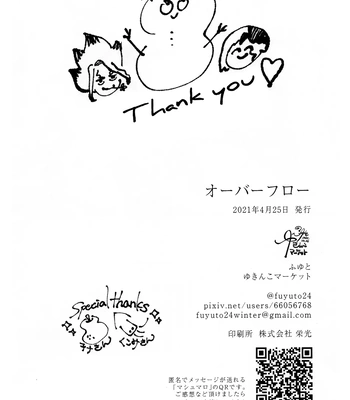 Thank you♡
オーバーフロー
2021年4月25日 発行
ふゆと
ゆきんこマーケット
@fuyuto24
pixiv.net/users/66056768
fuyuto24winter@gmail.com
印刷所 株式会社 栄光
Special thanks
匿名でメッセージが送れる
『マシュマロ』のQRです。
ご感想など頂けましたら